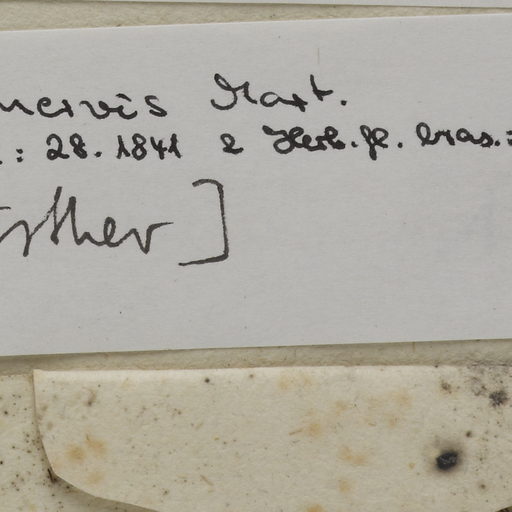 nervis Mart.
.: 28. 1841 & Herb. fl. bras.:
sther]